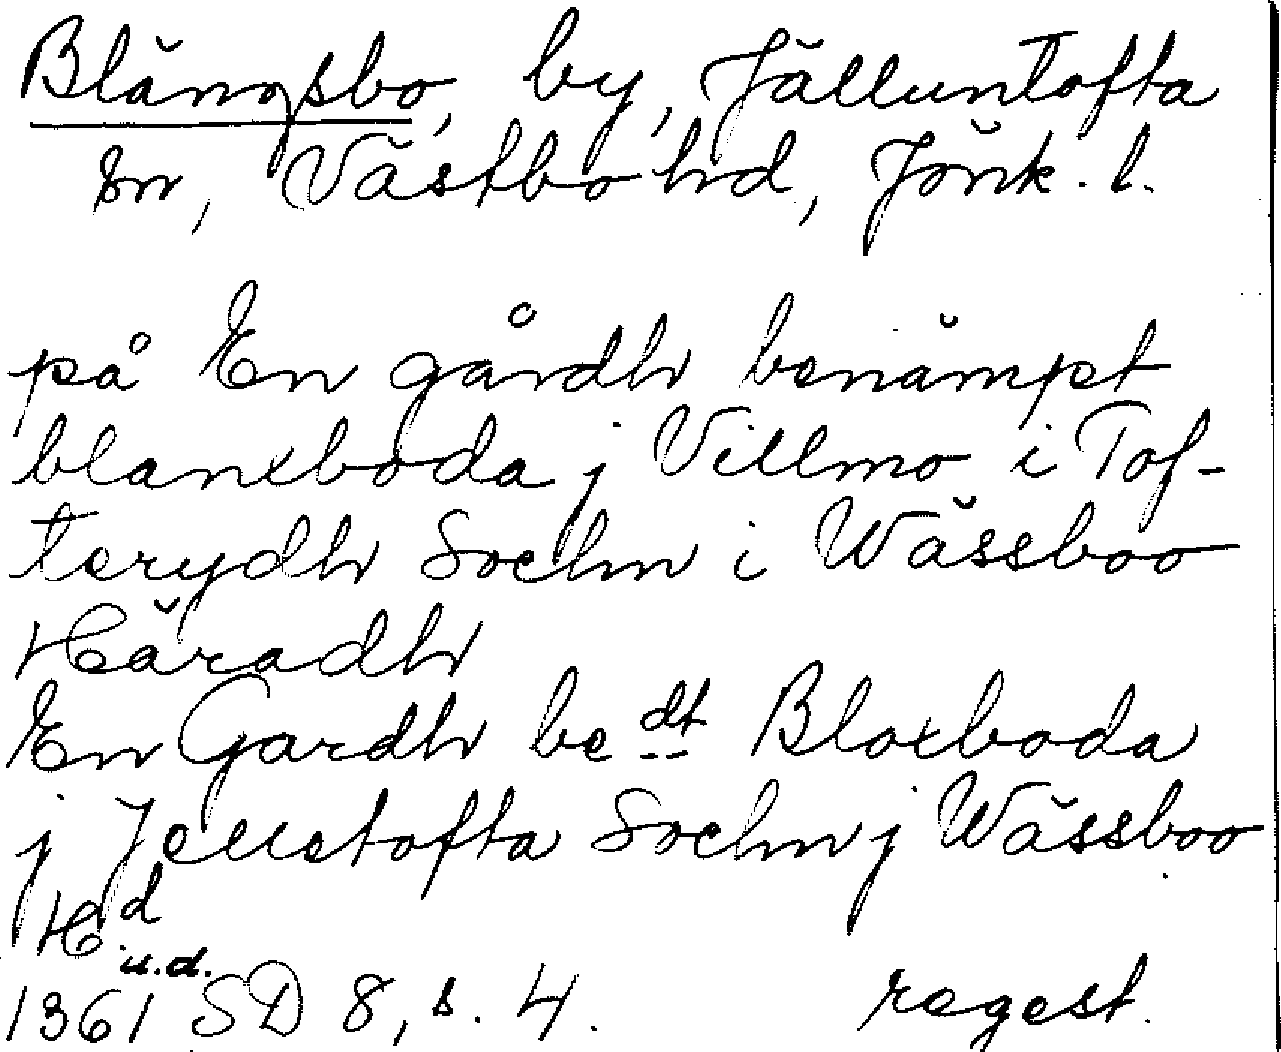 Blängsbo, by, Jälluntofta
sn, Västbo hd, Jönk. l.
på En gårdh benämpt
blanxboda j Villmo i Tof-
terydh Sochn i Wässboo
Häradh
En Gardh be dt Bloxboda
j Jelletofta Sochn j Wässboo
Hd
1361 u.d. SD 8, s. 4. regest.